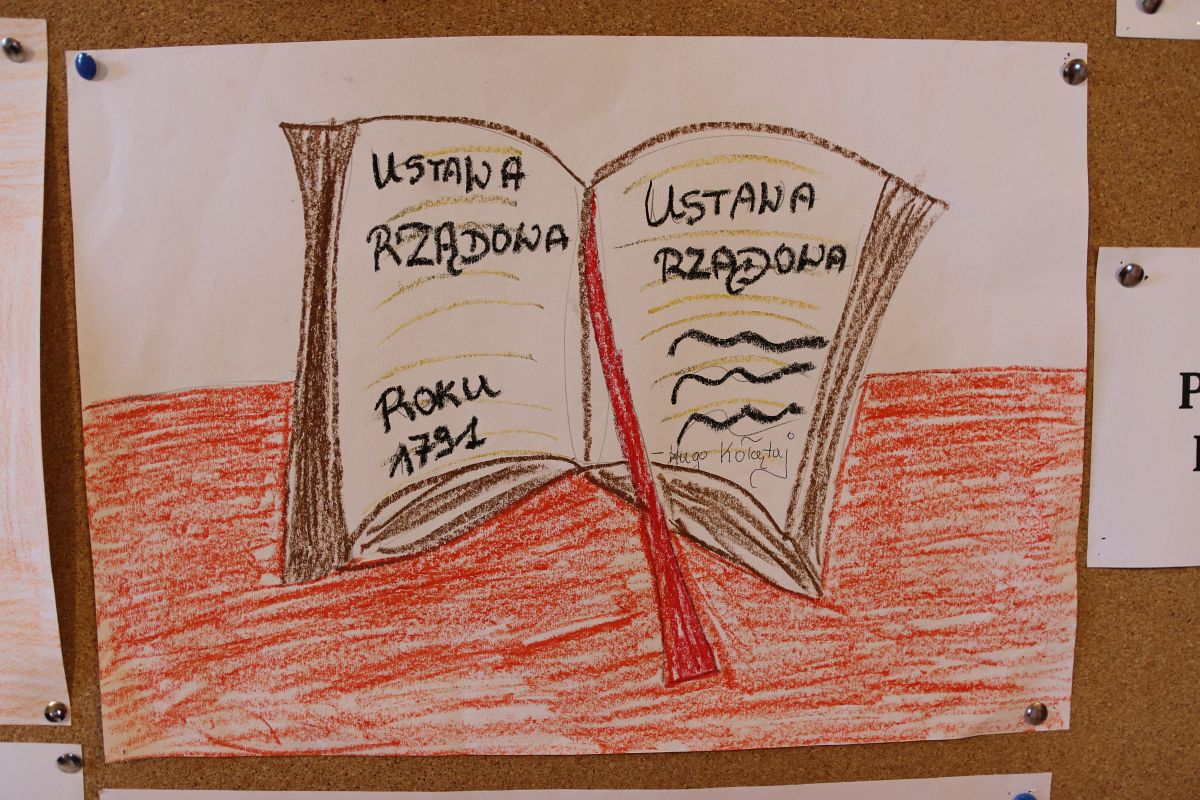 USTAWA
RZĄDOWA
ROKU
1791
USTAWA
RZĄDOWA
- Hugo Kołątaj
P